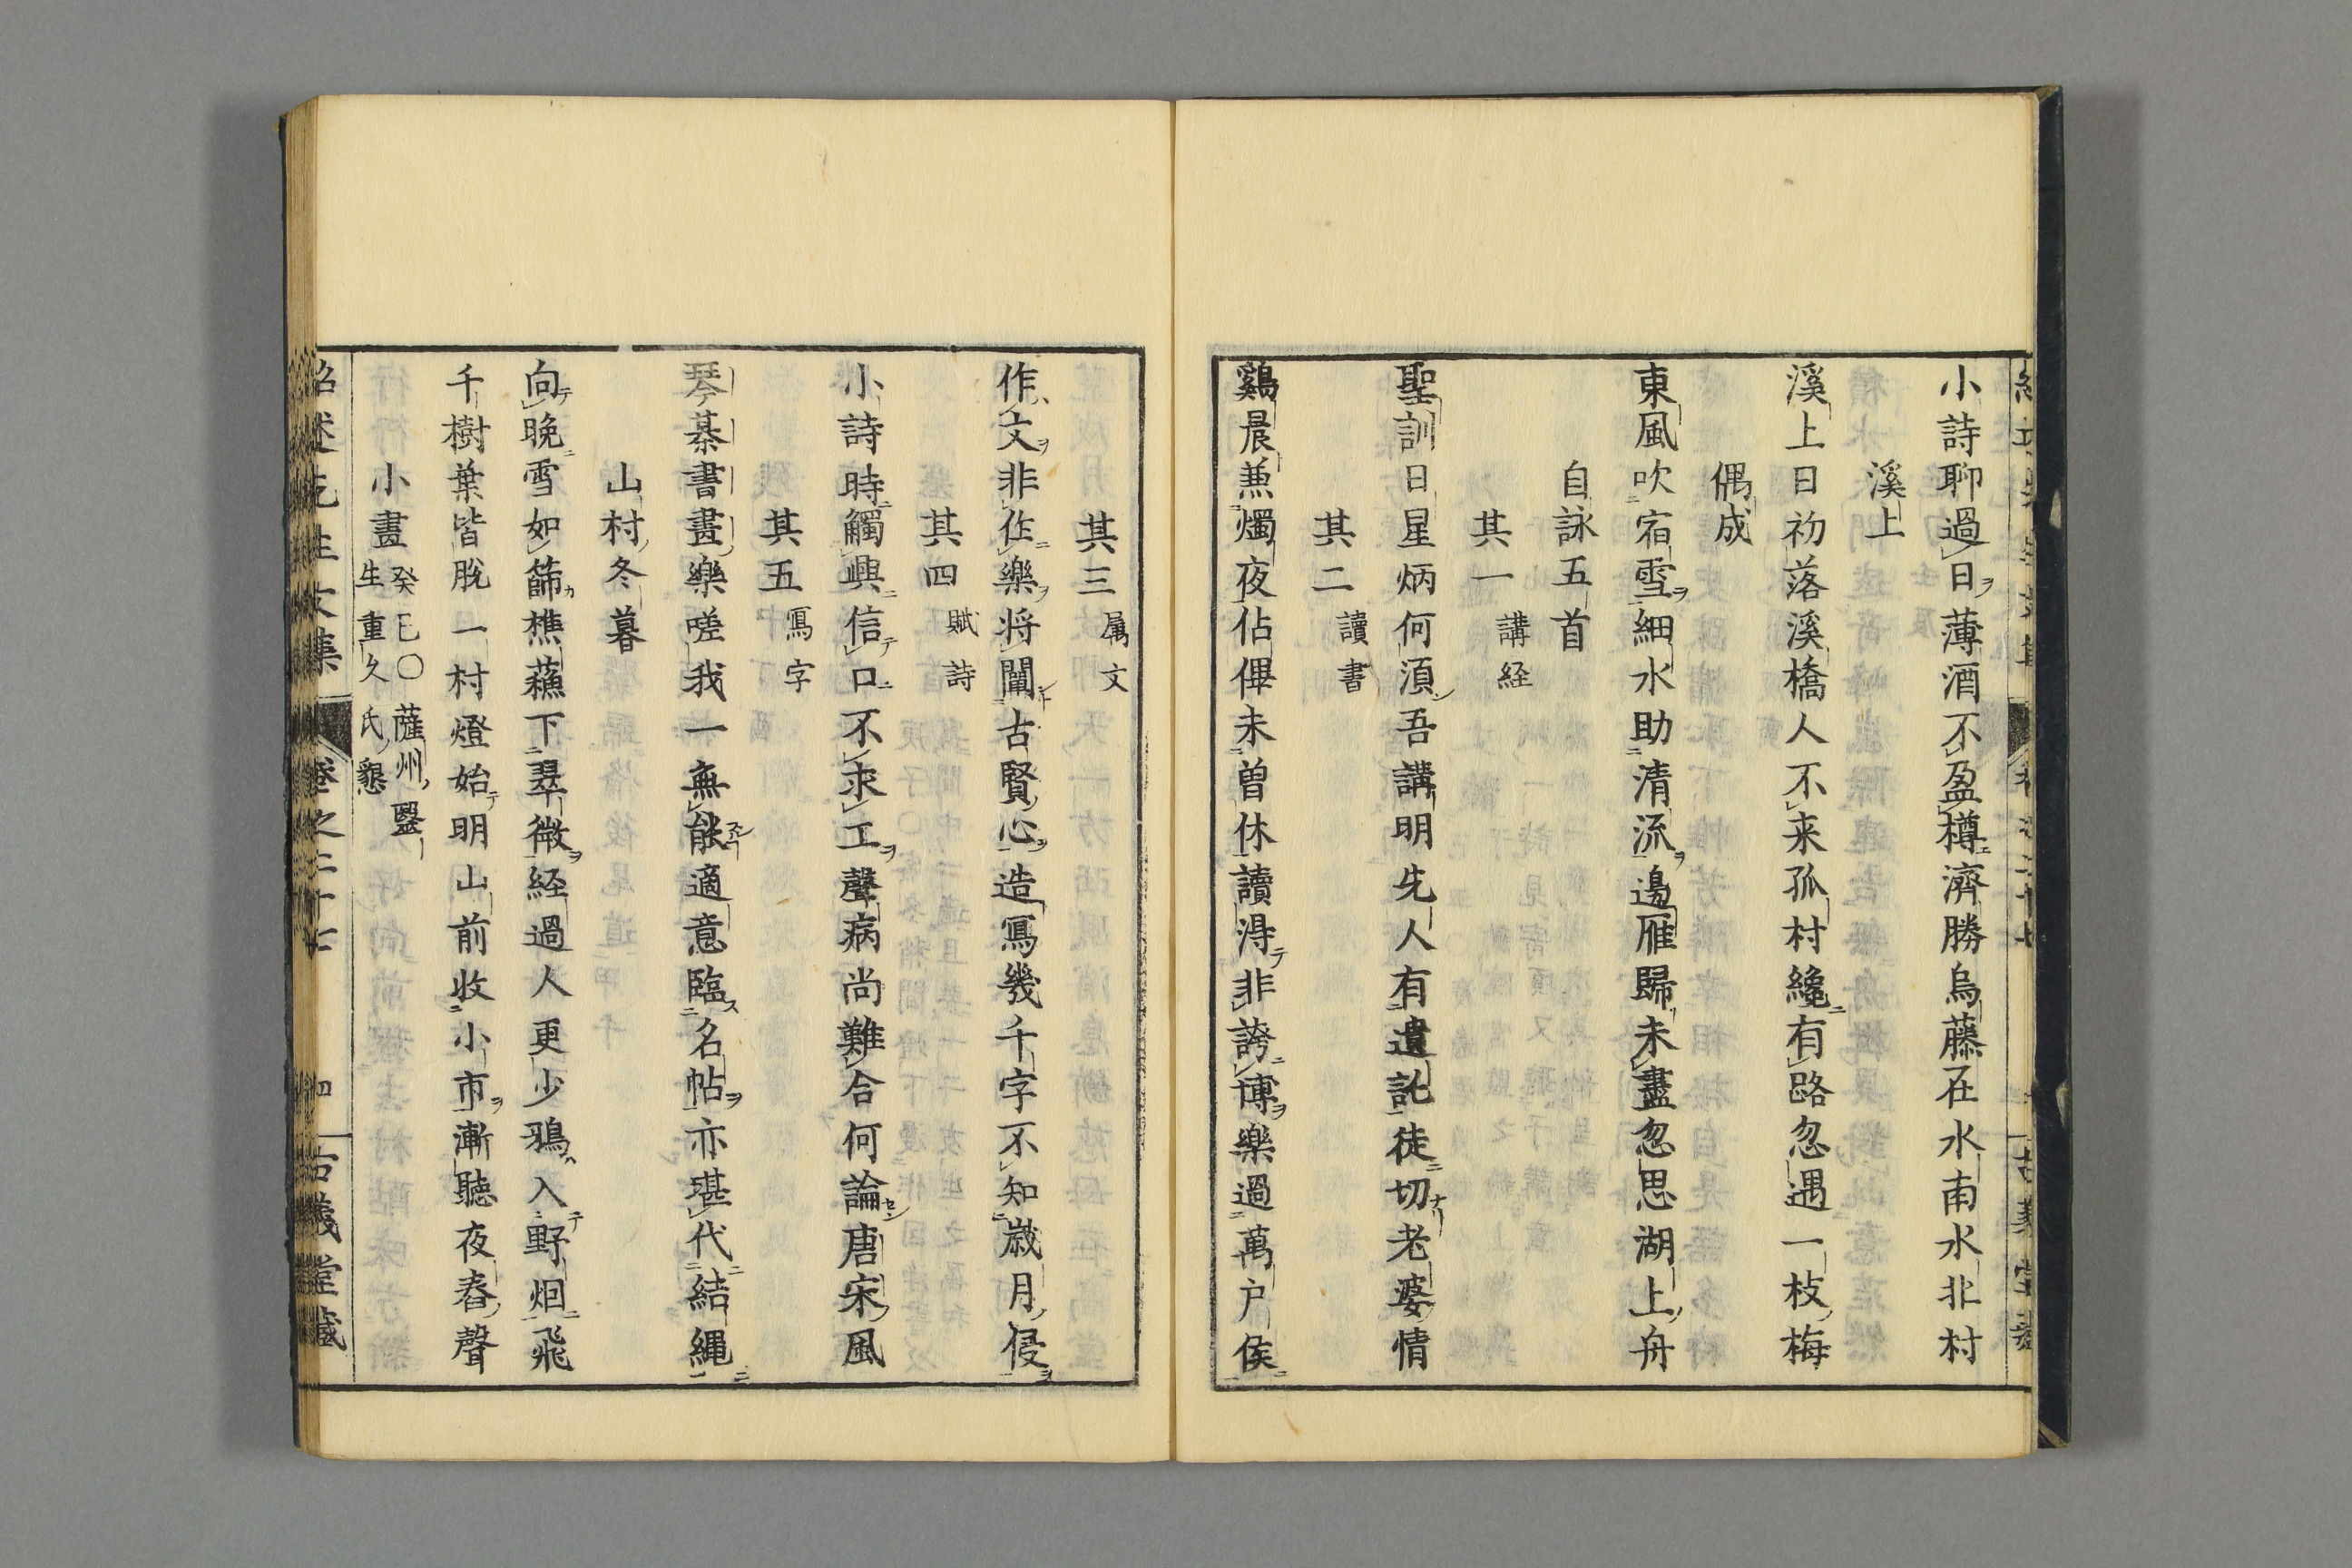 小詩聊過日薄酒不盈樽濟勝烏藤在水南水北村
溪上
溪上日初落溪橋人不来孤村纔有路忽遇一枝梅
偶成
東風吹宿雪細水助清流邊雁歸未盡忽思湖上舟
自詠五首
其一 講経
聖訓日星炳何湏吾講明先人有遺託徒切老婆情
其二 讀書
鷄晨兼燭夜佔俾未曽休讀淂非誇博樂過萬户侯
其三 属文
作文非作樂将闡古賢心造寫幾千字不知歲月侵
其四 賦詩
小詩時觸興信口不求工聲病尚難合何論唐宋風
其五 寫字
琴棊書畫樂嗟我一無能適意臨名帖亦堪代結縄
山村冬暮
向晚雪如篩樵蘓下翠微経過人更少鴉入野烟飛
千樹葉皆脱一村燈始明山前收小市漸聽夜舂聲
小畫 癸巳〇薩州醫
生重久氏懇
紹述先生文集 卷之二十七 四 古義堂藏